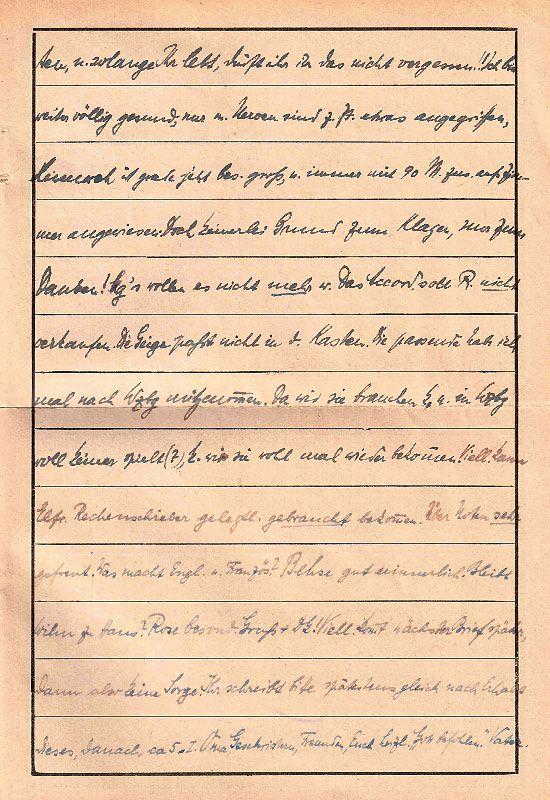 ten, u. solange Ihr lebt, dürft ihr das nicht vergessen! Ich bin
weiter völlig gesund, nur m. Nerven sind z. Zt. etwas angegriffen,
Heimweh ist grade jetzt bes. groß, u. immer mit 90 M. zus. auf Zim-
mer angewiesen. Doch keinerlei Grund zum Klagen, nur zum
Danken! wollen es nicht mehr w. Das Accord soll R. nicht
verkaufen. Die Geige paßt nicht in d. Kasten. Die passende habe ich
mal nach Wzbg mitgenommen. Da wird sie brauchen u. in Wzbg
wohl keiner spielt(?), wir sie wohl mal wieder bekommen. Viell. kann
Elfr. Rechenschieber gelegtl. gebraucht bekommen. Über Noten sehr
gefreut. Was macht Engl. u. Französ.? gut erinnerlich. Bleibt
zu Haus? Rose besond. Gruß + Dk! Viell. kommt nächster Brief später,
dann also keine Sorge. Ihr schreibt bitte spätestens gleich nach Erhalt
dieses, danach ca 5. Oma Geschwistern, Freunden, Euch herzl. "Gott befohlen". Vater.